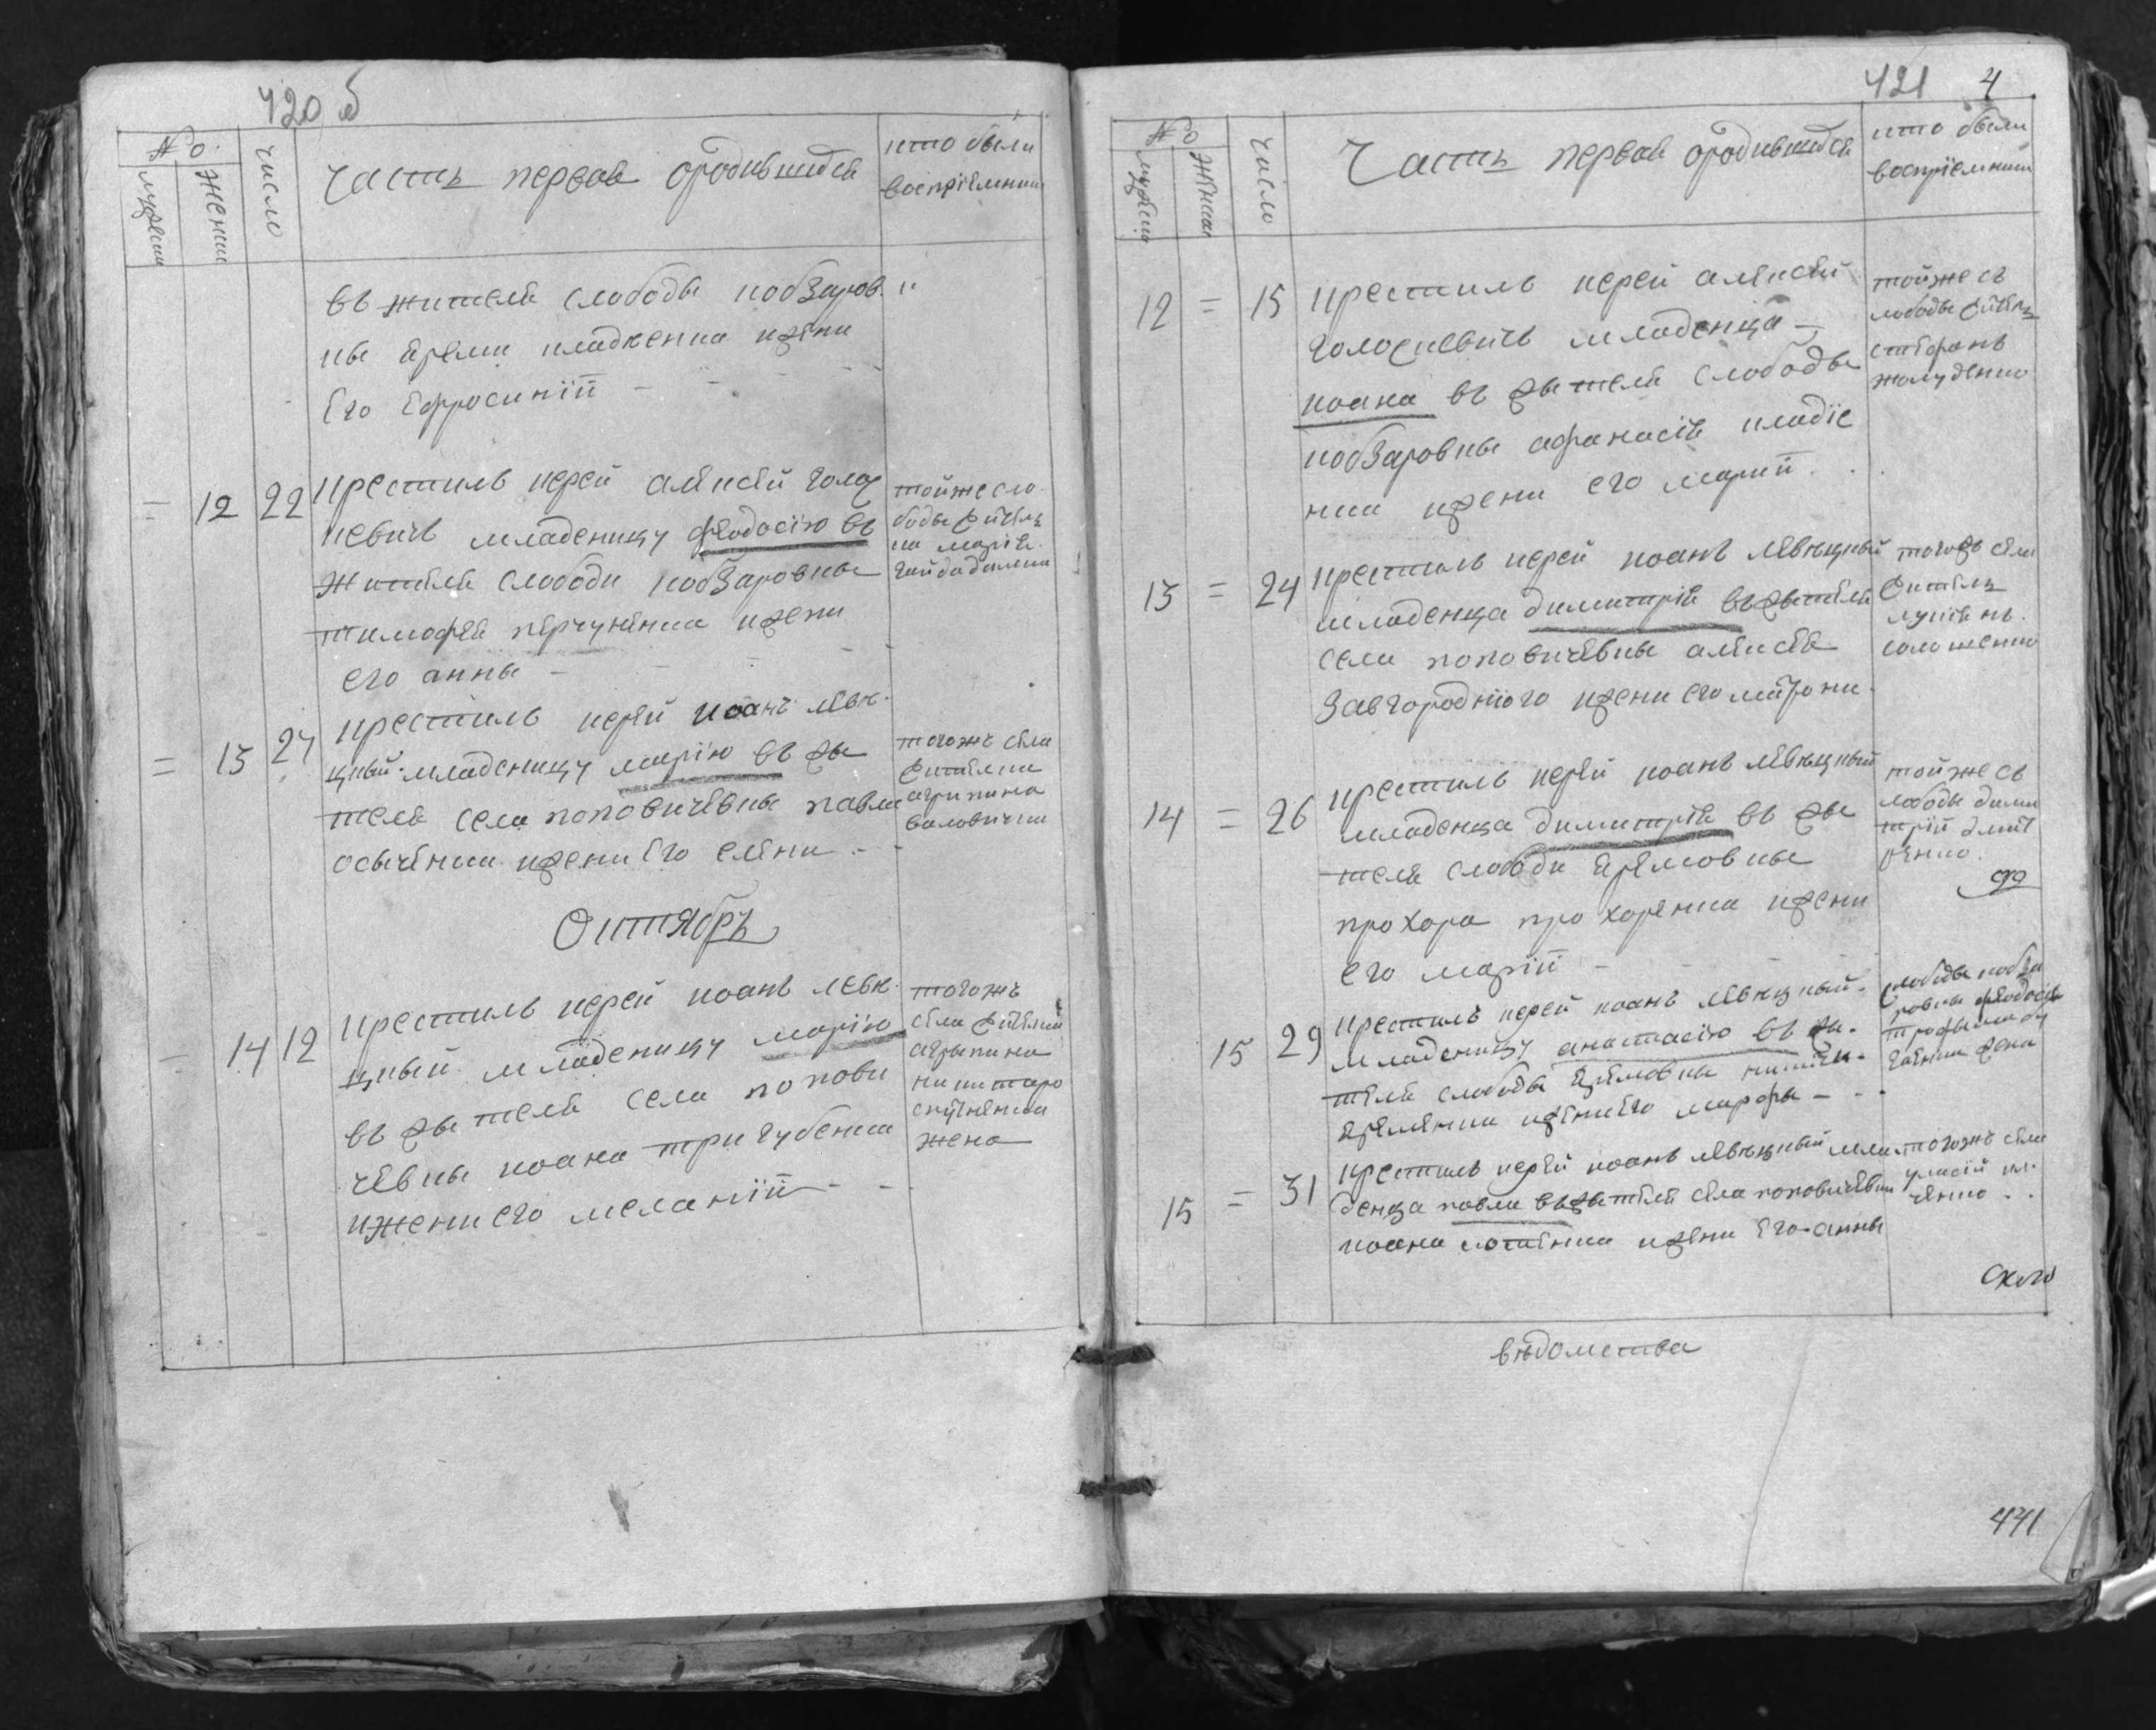 420 б
№
мужеск женск число
Часть первая ородившихся
кто были
восприемники
въ жителя слободы кобзаров
ки еремы кладкенка
его ефросинïй
= 12 22
крестилъ иерей алексей голос
кевичъ младеницу феодосïю въ
жителя слободи кобзаровки
тимофея
его анны
тойже сло
боды
марïя
гайдадимка
= 13 27
крестилъ иерей иоанъ левѣ
цкый младеницу марïю въ жи
теля села поповичевки павла
осыченка ижени его елени
тогожъ села
жителка
агрипина
Октябрь
14 12
крестилъ иерей иоанъ левѣ
цкый младеницу марïю
въ жителя села попови
чевки иоана тригубенка
ижени его меланïй
тогожъ
села
агрыпина
никитаро
жена
421 4
№
мужеск женска число
Часть первая ородившихся
кто были
восприемники
12 = 15
крестилъ иерей алексей
голоскевичъ младенца
иоана въ жителя слободы
кобзаровки афанасïя кладïе
нка ижени его марïй
тойже съ
лободы
стефанъ
жолуденко
13 = 24
крестилъ иерей иоанъ левѣцкый
младенца димитрïя въ жителя
села поповичевки алексея
Завгороднïого ижени его
тогожъ села
житель
лукïянъ
14 = 26
крестилъ иерей иоанъ левѣцкый
младенца димитрïя въ жи
теля слободи еремовки
прохора прохоренка ижени
его марïй
тойже съ
лободы дими
трïй
15 29
крестилъ иерей иоанъ левѣцкый
младеницу анастасïю въ жи
теля слободы еремовки
еременка ижени его марфы
слободы кобза
ровки феодосïя
жена
15 = 31
крестилъ иерей иоанъ левѣцкый мла
денца павла въ жителя села поповичевки
иоана ижени его анны
тогожъ села
вѣдомства
441